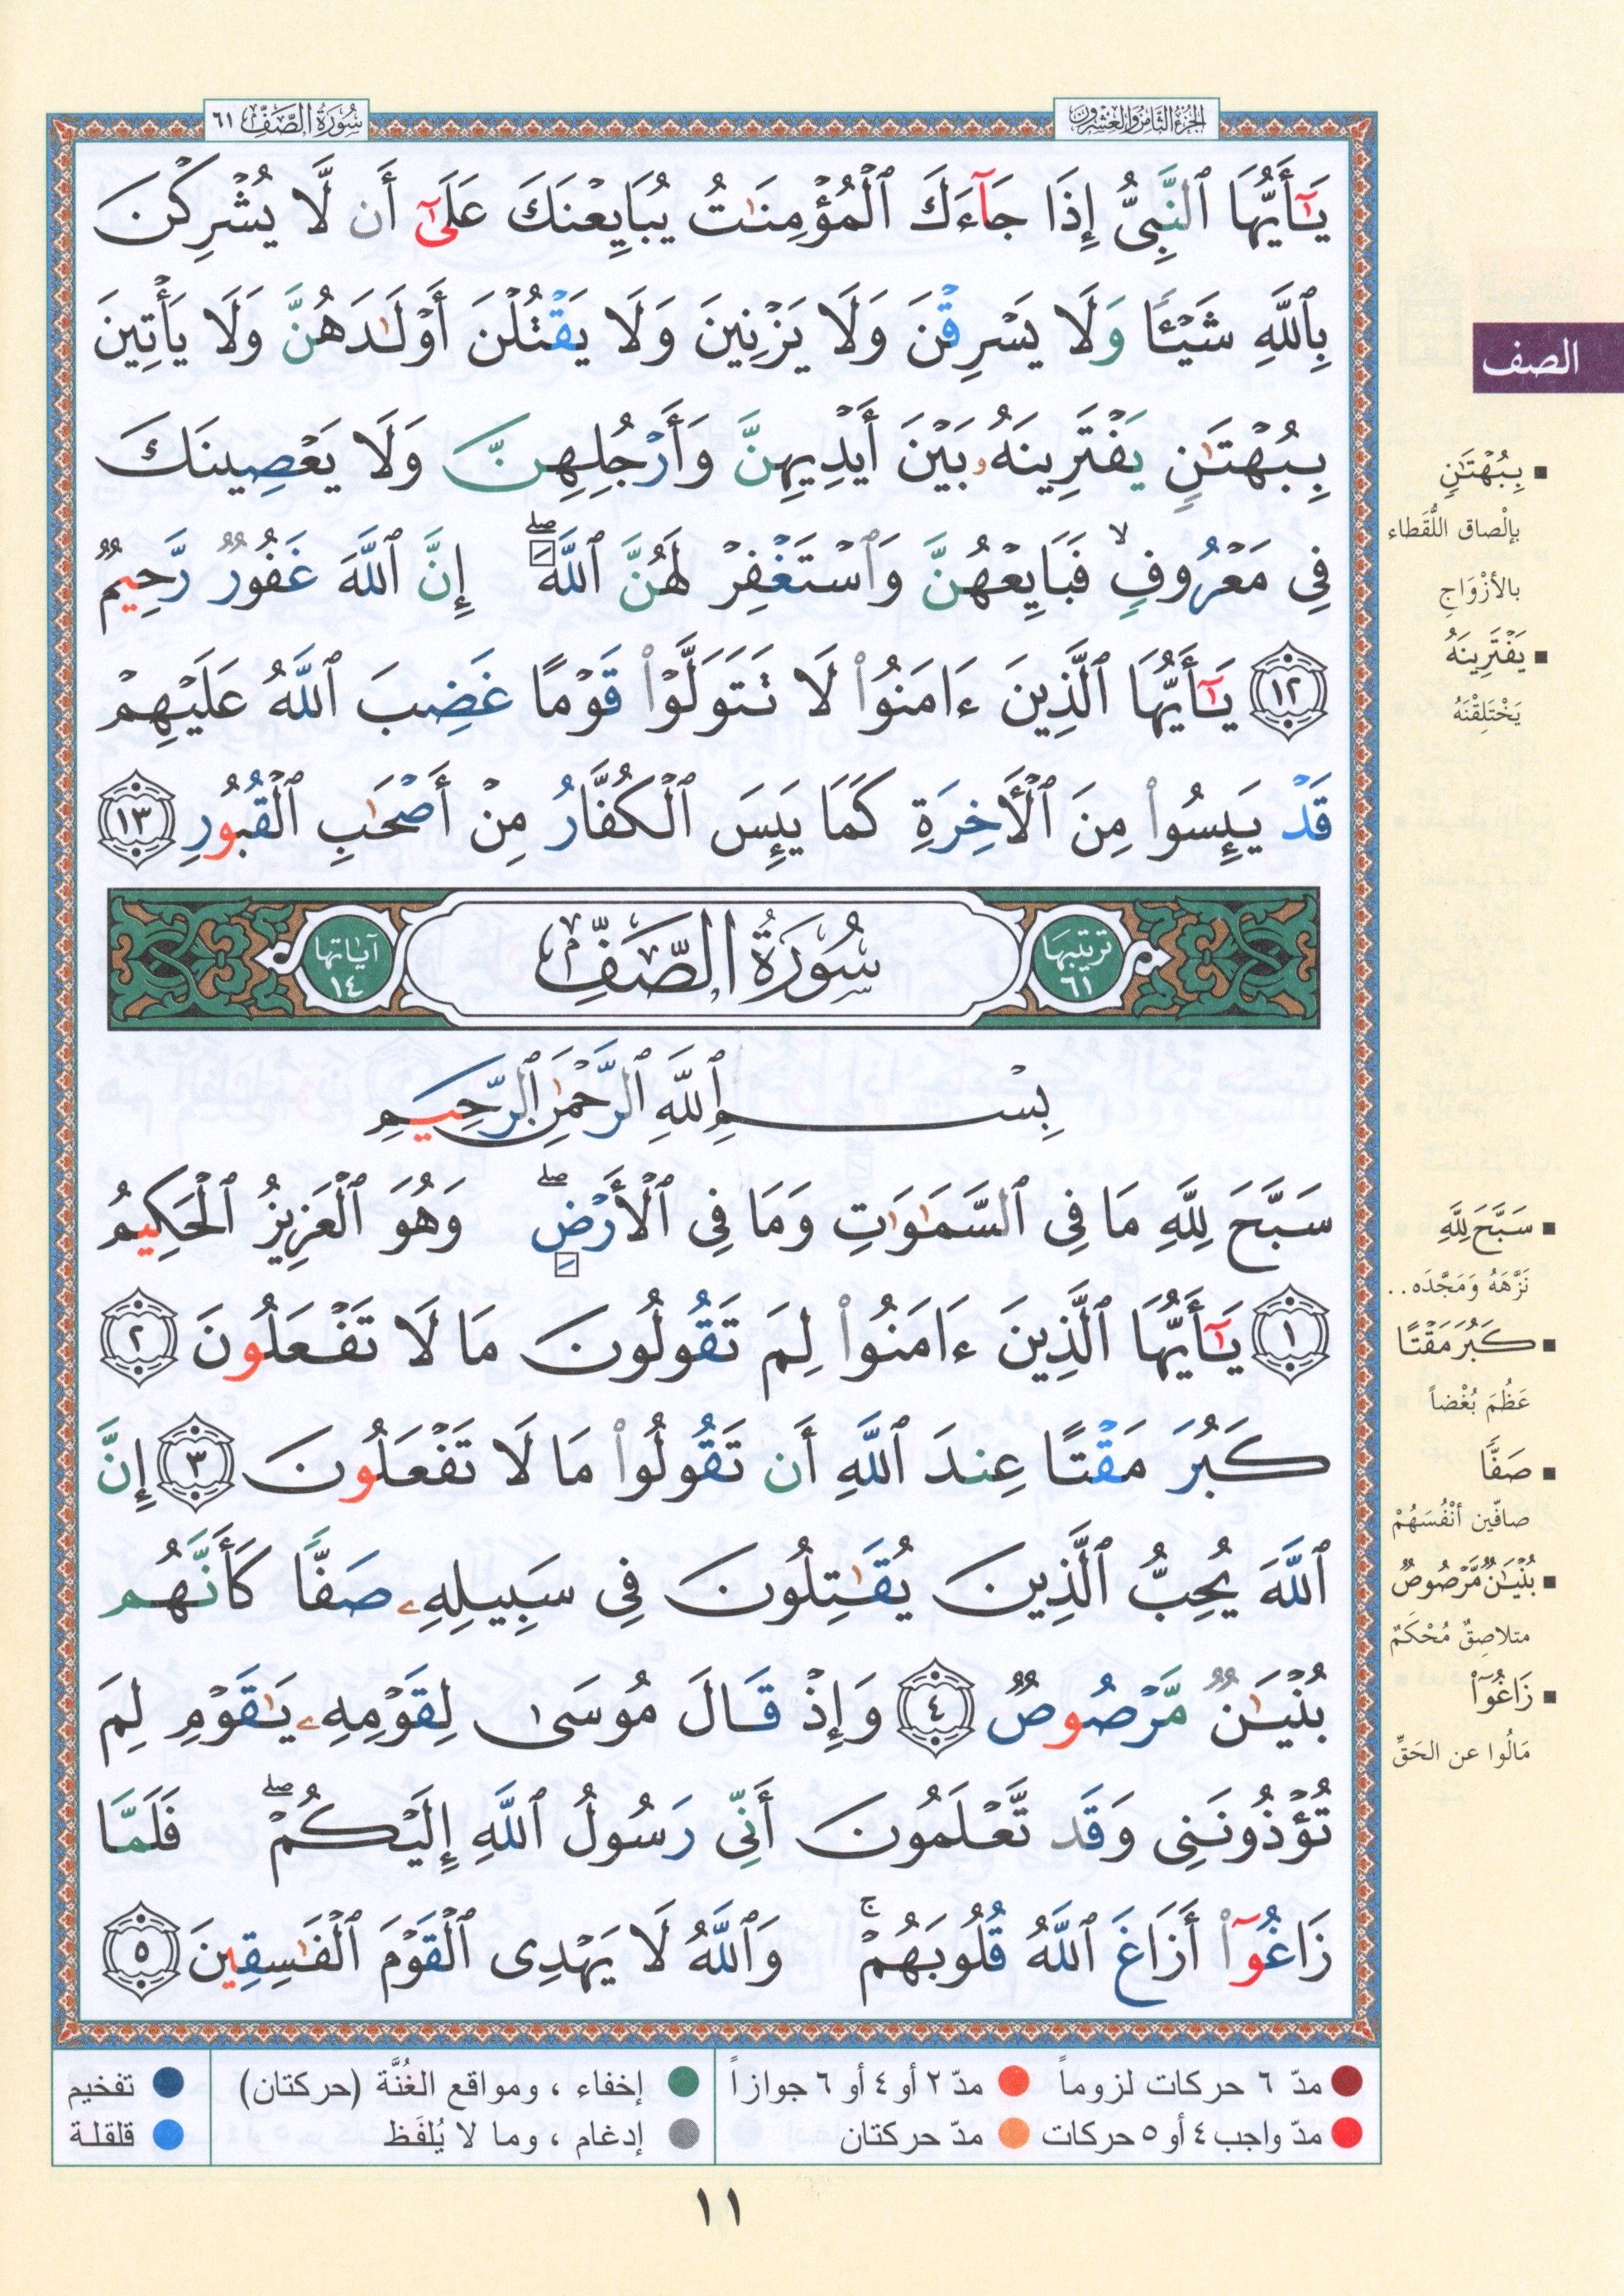 سُورَةُ الصَّفِّ ٦١
الجُزْءُ الثَّامِنُ وَالعِشْرُونَ
يَٰٓأَيُّهَا ٱلنَّبِىُّ إِذَا جَآءَكَ ٱلْمُؤْمِنَٰتُ يُبَايِعْنَكَ عَلَىٰٓ أَن لَّا يُشْرِكْنَ
بِٱللَّهِ شَيْـًٔا وَلَا يَسْرِقْنَ وَلَا يَزْنِينَ وَلَا يَقْتُلْنَ أَوْلَٰدَهُنَّ وَلَا يَأْتِينَ
بِبُهْتَٰنٍ يَفْتَرِينَهُۥ بَيْنَ أَيْدِيهِنَّ وَأَرْجُلِهِنَّ وَلَا يَعْصِينَكَ
فِى مَعْرُوفٍ ۙ فَبَايِعْهُنَّ وَٱسْتَغْفِرْ لَهُنَّ ٱللَّهَ ۖ إِنَّ ٱللَّهَ غَفُورٌ رَّحِيمٌ
١٢ يَٰٓأَيُّهَا ٱلَّذِينَ ءَامَنُوا۟ لَا تَتَوَلَّوْا۟ قَوْمًا غَضِبَ ٱللَّهُ عَلَيْهِمْ
قَدْ يَئِسُوا۟ مِنَ ٱلْأَخِرَةِ كَمَا يَئِسَ ٱلْكُفَّارُ مِنْ أَصْحَٰبِ ٱلْقُبُورِ ١٣
ترتيبها ٦١
سُورَةُ الصَّفِّ
آياتها ١٤
بِسْمِ ٱللَّهِ ٱلرَّحْمَٰنِ ٱلرَّحِيمِ
سَبَّحَ لِلَّهِ مَا فِى ٱلسَّمَٰوَٰتِ وَمَا فِى ٱلْأَرْضِ ۖ وَهُوَ ٱلْعَزِيزُ ٱلْحَكِيمُ
١ يَٰٓأَيُّهَا ٱلَّذِينَ ءَامَنُوا۟ لِمَ تَقُولُونَ مَا لَا تَفْعَلُونَ ٢
كَبُرَ مَقْتًا عِندَ ٱللَّهِ أَن تَقُولُوا۟ مَا لَا تَفْعَلُونَ ٣ إِنَّ
ٱللَّهَ يُحِبُّ ٱلَّذِينَ يُقَٰتِلُونَ فِى سَبِيلِهِۦ صَفًّا كَأَنَّهُم
بُنْيَٰنٌ مَّرْصُوصٌ ٤ وَإِذْ قَالَ مُوسَىٰ لِقَوْمِهِۦ يَٰقَوْمِ لِمَ
تُؤْذُونَنِى وَقَد تَّعْلَمُونَ أَنِّى رَسُولُ ٱللَّهِ إِلَيْكُمْ ۖ فَلَمَّا
زَاغُوٓا۟ أَزَاغَ ٱللَّهُ قُلُوبَهُمْ ۚ وَٱللَّهُ لَا يَهْدِى ٱلْقَوْمَ ٱلْفَٰسِقِينَ ٥
الصف
■ بِبُهْتَٰنٍ
بإلْصاق اللُّقَطاء
بالأزْوَاجِ
■ يَفْتَرِينَهُ
يَخْتَلِقْنَهُ
■ سَبَّحَ لِلَّهِ
نَزَّهَهُ وَمَجَّدَه..
■ كَبُرَ مَقْتًا
عَظُمَ بُغْضاً
■ صَفًّا
صافّين أنْفُسَهُمْ
■ بُنْيَٰنٌ مَّرْصُوصٌ
متلاصِقٌ مُحْكَمٌ
■ زَاغُوٓا۟
مَالُوا عن الحَقِّ
مدّ ٦ حركات لزوماً
مدّ ٢ أو ٤ أو ٦ جوازاً
إخفاء ، ومواقع الغُنَّة (حركتان)
تفخيم
مدّ واجب ٤ أو ٥ حركات
مدّ حركتان
إدغام ، وما لا يُلفَظ
قلقلة
١١